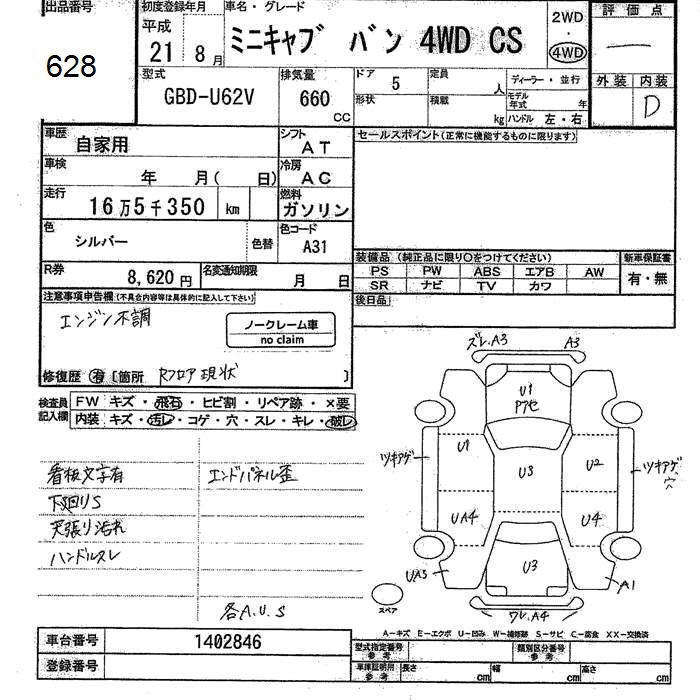 出品番号
628
初度登録年月
平成
21 8月
車名・グレード
ミニキャブ バン 4WD CS
2WD
・
4WD
評価点
外装 内装
D
型式
GBD-U62V
排気量
660
CC
ドア
5
形状
定員
人
積載
kg
ディーラー・並行
モデル
年式 年
ハンドル 左・右
車歴
自家用
シフト
AT
車検
年 月( 日)
冷房
AC
走行
16万5千350 km
燃料
ガソリン
色
シルバー
色替
色コード
A31
R券
8,620円
名変通知期限
月 日
セールスポイント(正常に機能するものに限ります)
装備品(純正品に限り○をつけてください)
PS PW ABS エアB AW
SR ナビ TV カワ
新車保証書
有・無
後日品
注意事項申告欄(不具合内容等は具体的に記入して下さい)
エンジン不調
ノークレーム車
no claim
修復歴 有 [箇所 Rフロア現状 ]
検査員
記入欄
FW キズ・飛石・ヒビ割・リペア跡・×要
内装 キズ・汚レ・コゲ・穴・スレ・キレ・破レ
看板文字有
エンドパネル歪
下廻りS
天張り汚れ
ハンドルスレ
各A.U.S
ズレ.A3
A3
U1
Pアセ
ツキアゲ
U1
U3
U2
ツキアゲ
穴
UA4
U4
UA3
U3
A1
スペア
ワレ.A4
A-キズ E-エクボ U-凹み W-補修跡 S-サビ C-腐食 XX-交換済
車台番号
1402846
登録番号
型式指定番号
参考
類別区分番号
参考
車庫証明用
参考
長さ cm
幅 cm
高さ cm